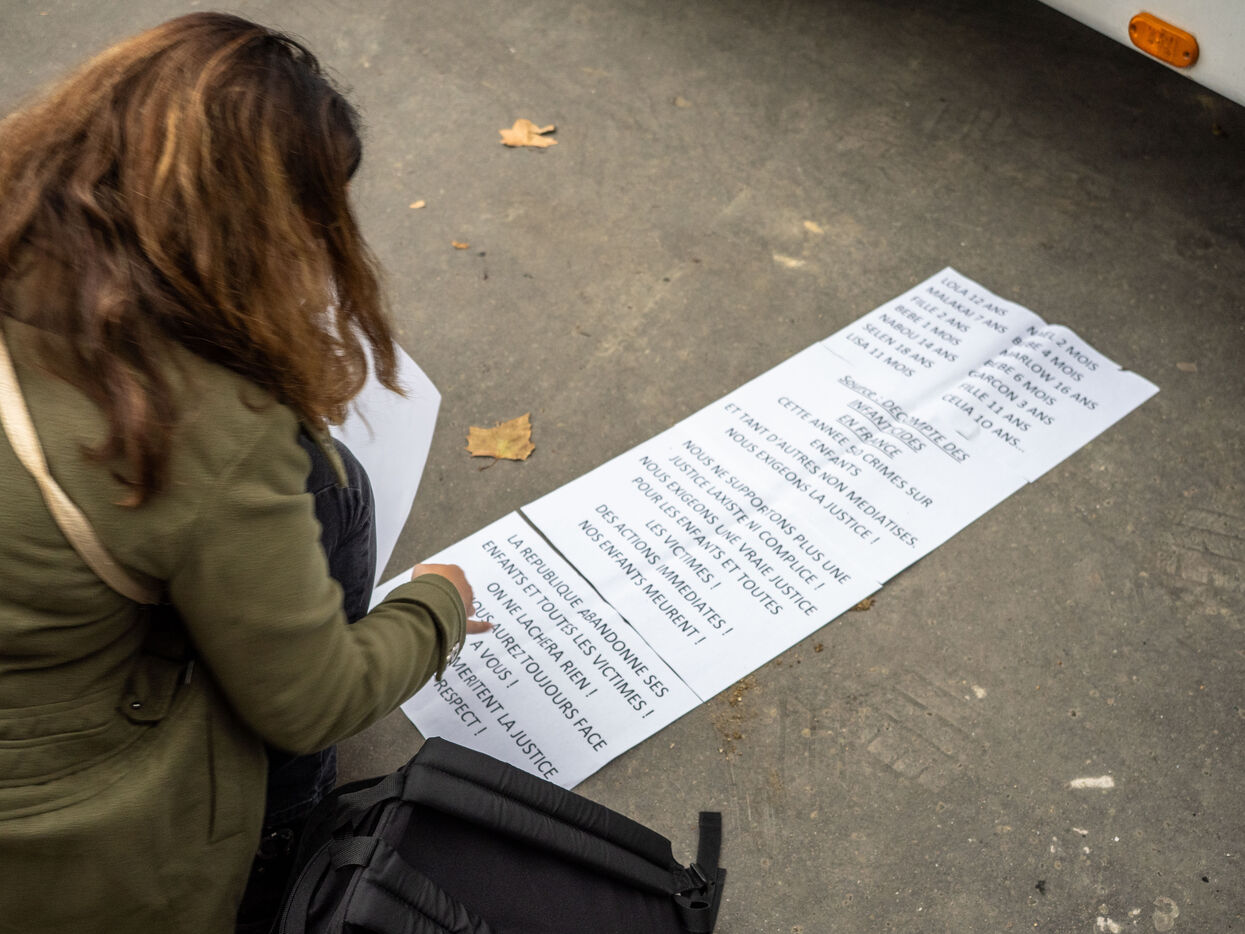 LOLA 12 ANS
MALAKAI 7 ANS
FILLE 2 ANS
BEBE 1 MOIS
NABOU 14 ANS
SELEN 18 ANS
LISA 11 MOIS
2 MOIS
BEBE 4 MOIS
MARLOW 16 ANS
BEBE 6 MOIS
GARCON 3 ANS
FILLE 11 ANS
CELIA 10 ANS...
Source : DECOMPTE DES
INFANTICIDES
EN FRANCE
CETTE ANNEE CRIMES SUR
ENFANTS
ET TANT D'AUTRES NON MEDIATISES.
NOUS EXIGEONS LA JUSTICE !
NOUS NE SUPPORTONS PLUS UNE
JUSTICE LAXISTE NI COMPLICE !
NOUS EXIGEONS UNE VRAIE JUSTICE
POUR LES ENFANTS ET TOUTES
LES VICTIMES !
DES ACTIONS IMMEDIATES !
NOS ENFANTS MEURENT !
LA REPUBLIQUE ABANDONNE SES
ENFANTS ET TOUTES LES VICTIMES !
ON NE LACHERA RIEN !
VOUS AUREZ TOUJOURS FACE
A VOUS !
MERITENT LA JUSTICE
RESPECT !